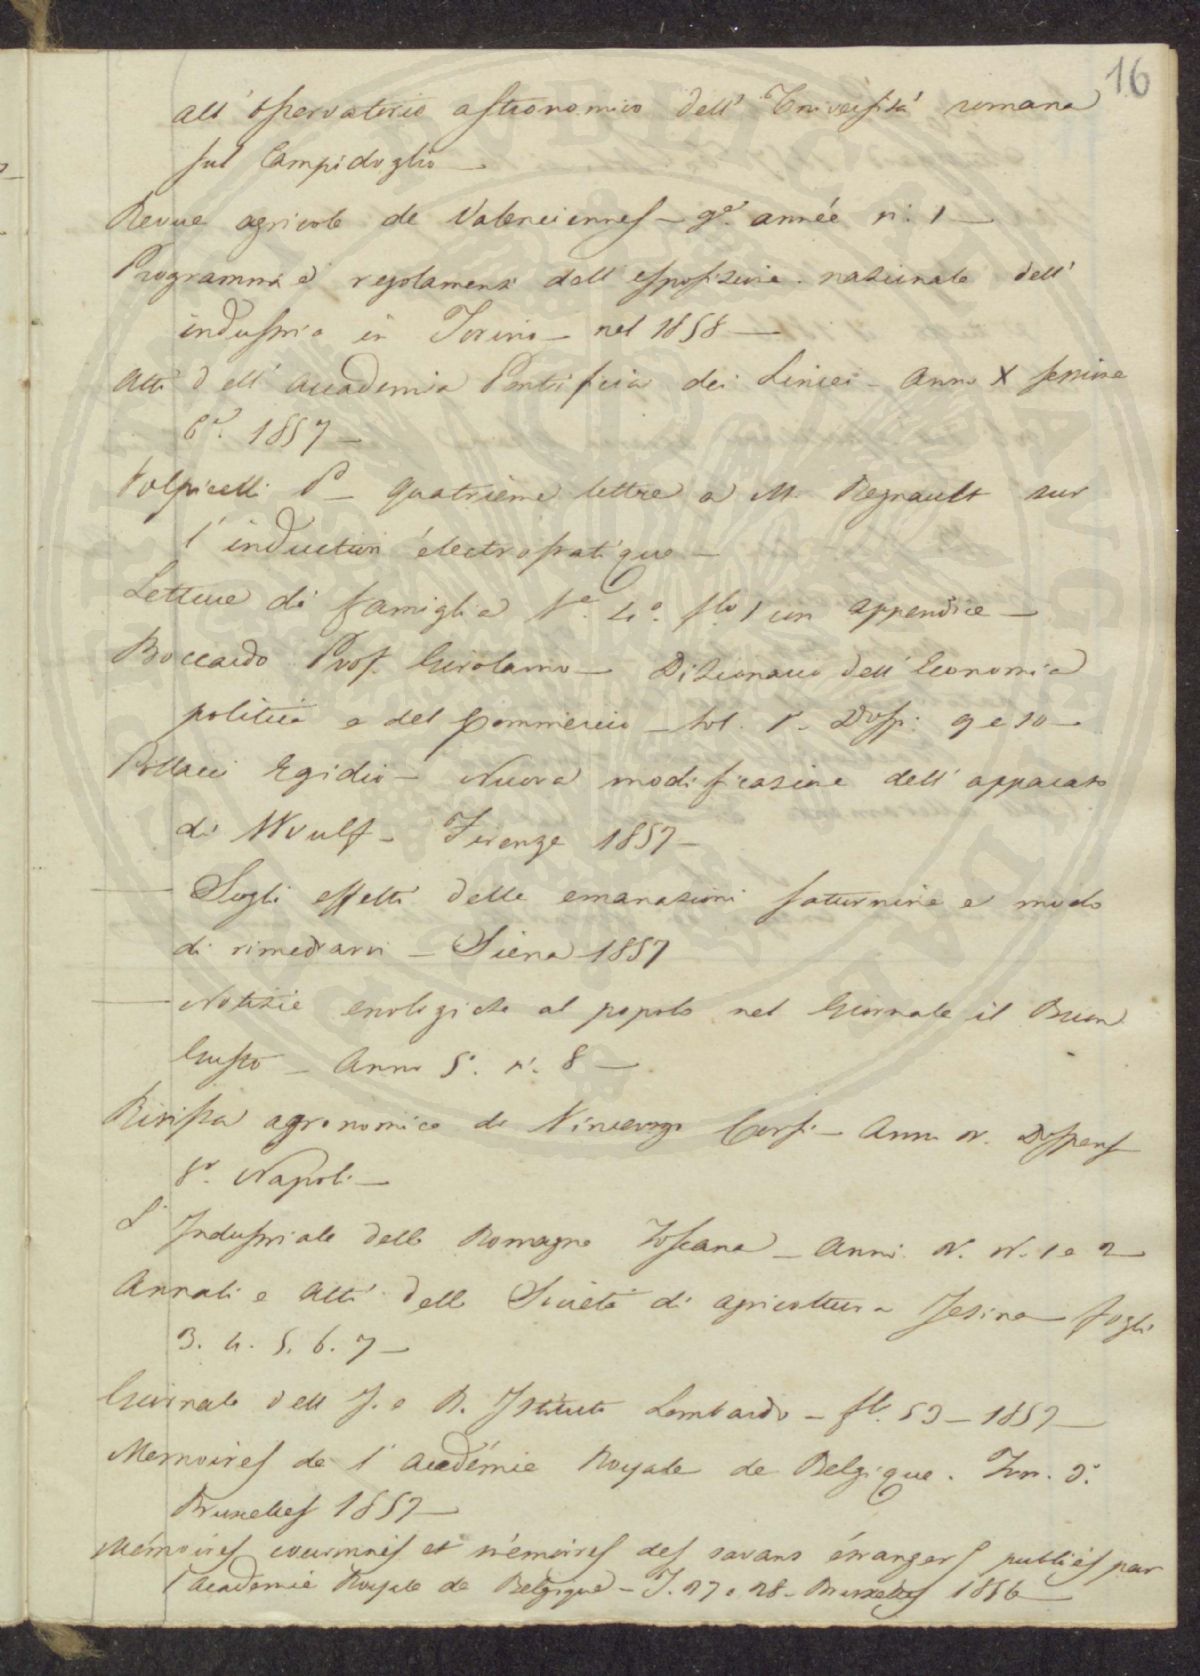 16
all' Osservatorio astronomico dell' Università romana
sul Campidoglio —
Revue agricole de Valenciennes — 9e. année n. 1 —
Programma e regolamenti dell' esposizione nazionale dell'
industria in Torino — nel 1858 —
Atti dell' Accademia Pontificia dei Lincei — Anno X sessione
6a. 1857 —
Volpicelli P — Quatrième lettre a M. Regnault sur
l'induction électrostatique —
Letture di famiglia 4o. 1 con appendice —
Boccardo Prof. Girolamo — Dizionario dell' Economia
politica e del Commercio — Vol. 1o. Disp: 9 e 10 —
Pollacci Egidio — Nuova modificazione dell' apparato
di Woulf — Firenze 1857 —
— Sugli effetti delle emanazioni saturnine e modo
di rimediarvi — Siena 1857
— Notizie enologiche al popolo nel Giornale il Buon
Gusto — Anno 5o. n. 8 —
Rivista agronomica di Vincenzo Corsi — Anno Dispens
Napoli —
L' Industriale della Romagna Toscana — Anno N. 1 e 2
Annali e Atti della Società di agricoltura Jesina — fogli
3. 4. 5. 6. 7 —
Giornale dell' I. e R. Istituto Lombardo — 53 — 1857 —
Memoires de l' Académie Royale de Belgique. Tom.
Bruxelles 1857 —
Mémoires couronnés et mémoires des savans étrangers publiés par
l'Academie Royale de Belgique — T. 27 e 28 — Bruxelles 1856 —